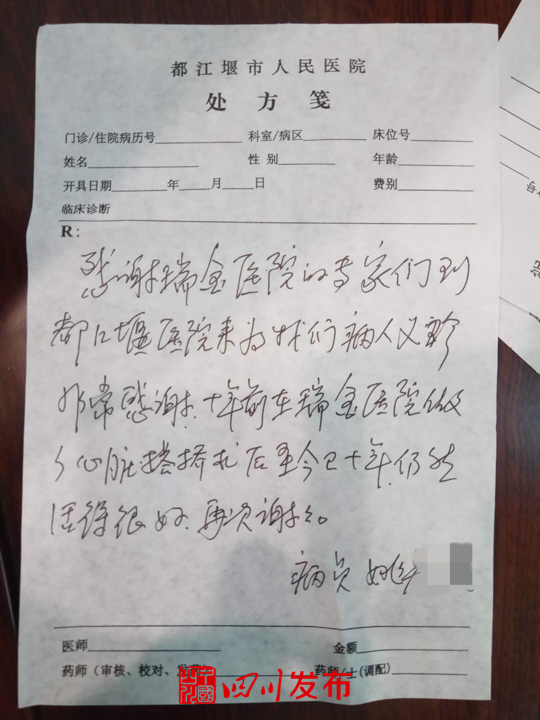 都江堰市人民医院
处方笺
门诊/住院病历号 科室/病区 床位号
姓名 性别 年龄
开具日期 年 月 日 费别
临床诊断
R:
感谢瑞金医院的专家们到
都江堰医院来为我们病人义诊
非常感谢.十年前在瑞金医院做
了心脏搭桥术后至今已十年.仍然
活得很好.再次谢谢。
病员 姚
医师 金额
药师(审核、校对、发药) 药师/士(调配)
四川发布